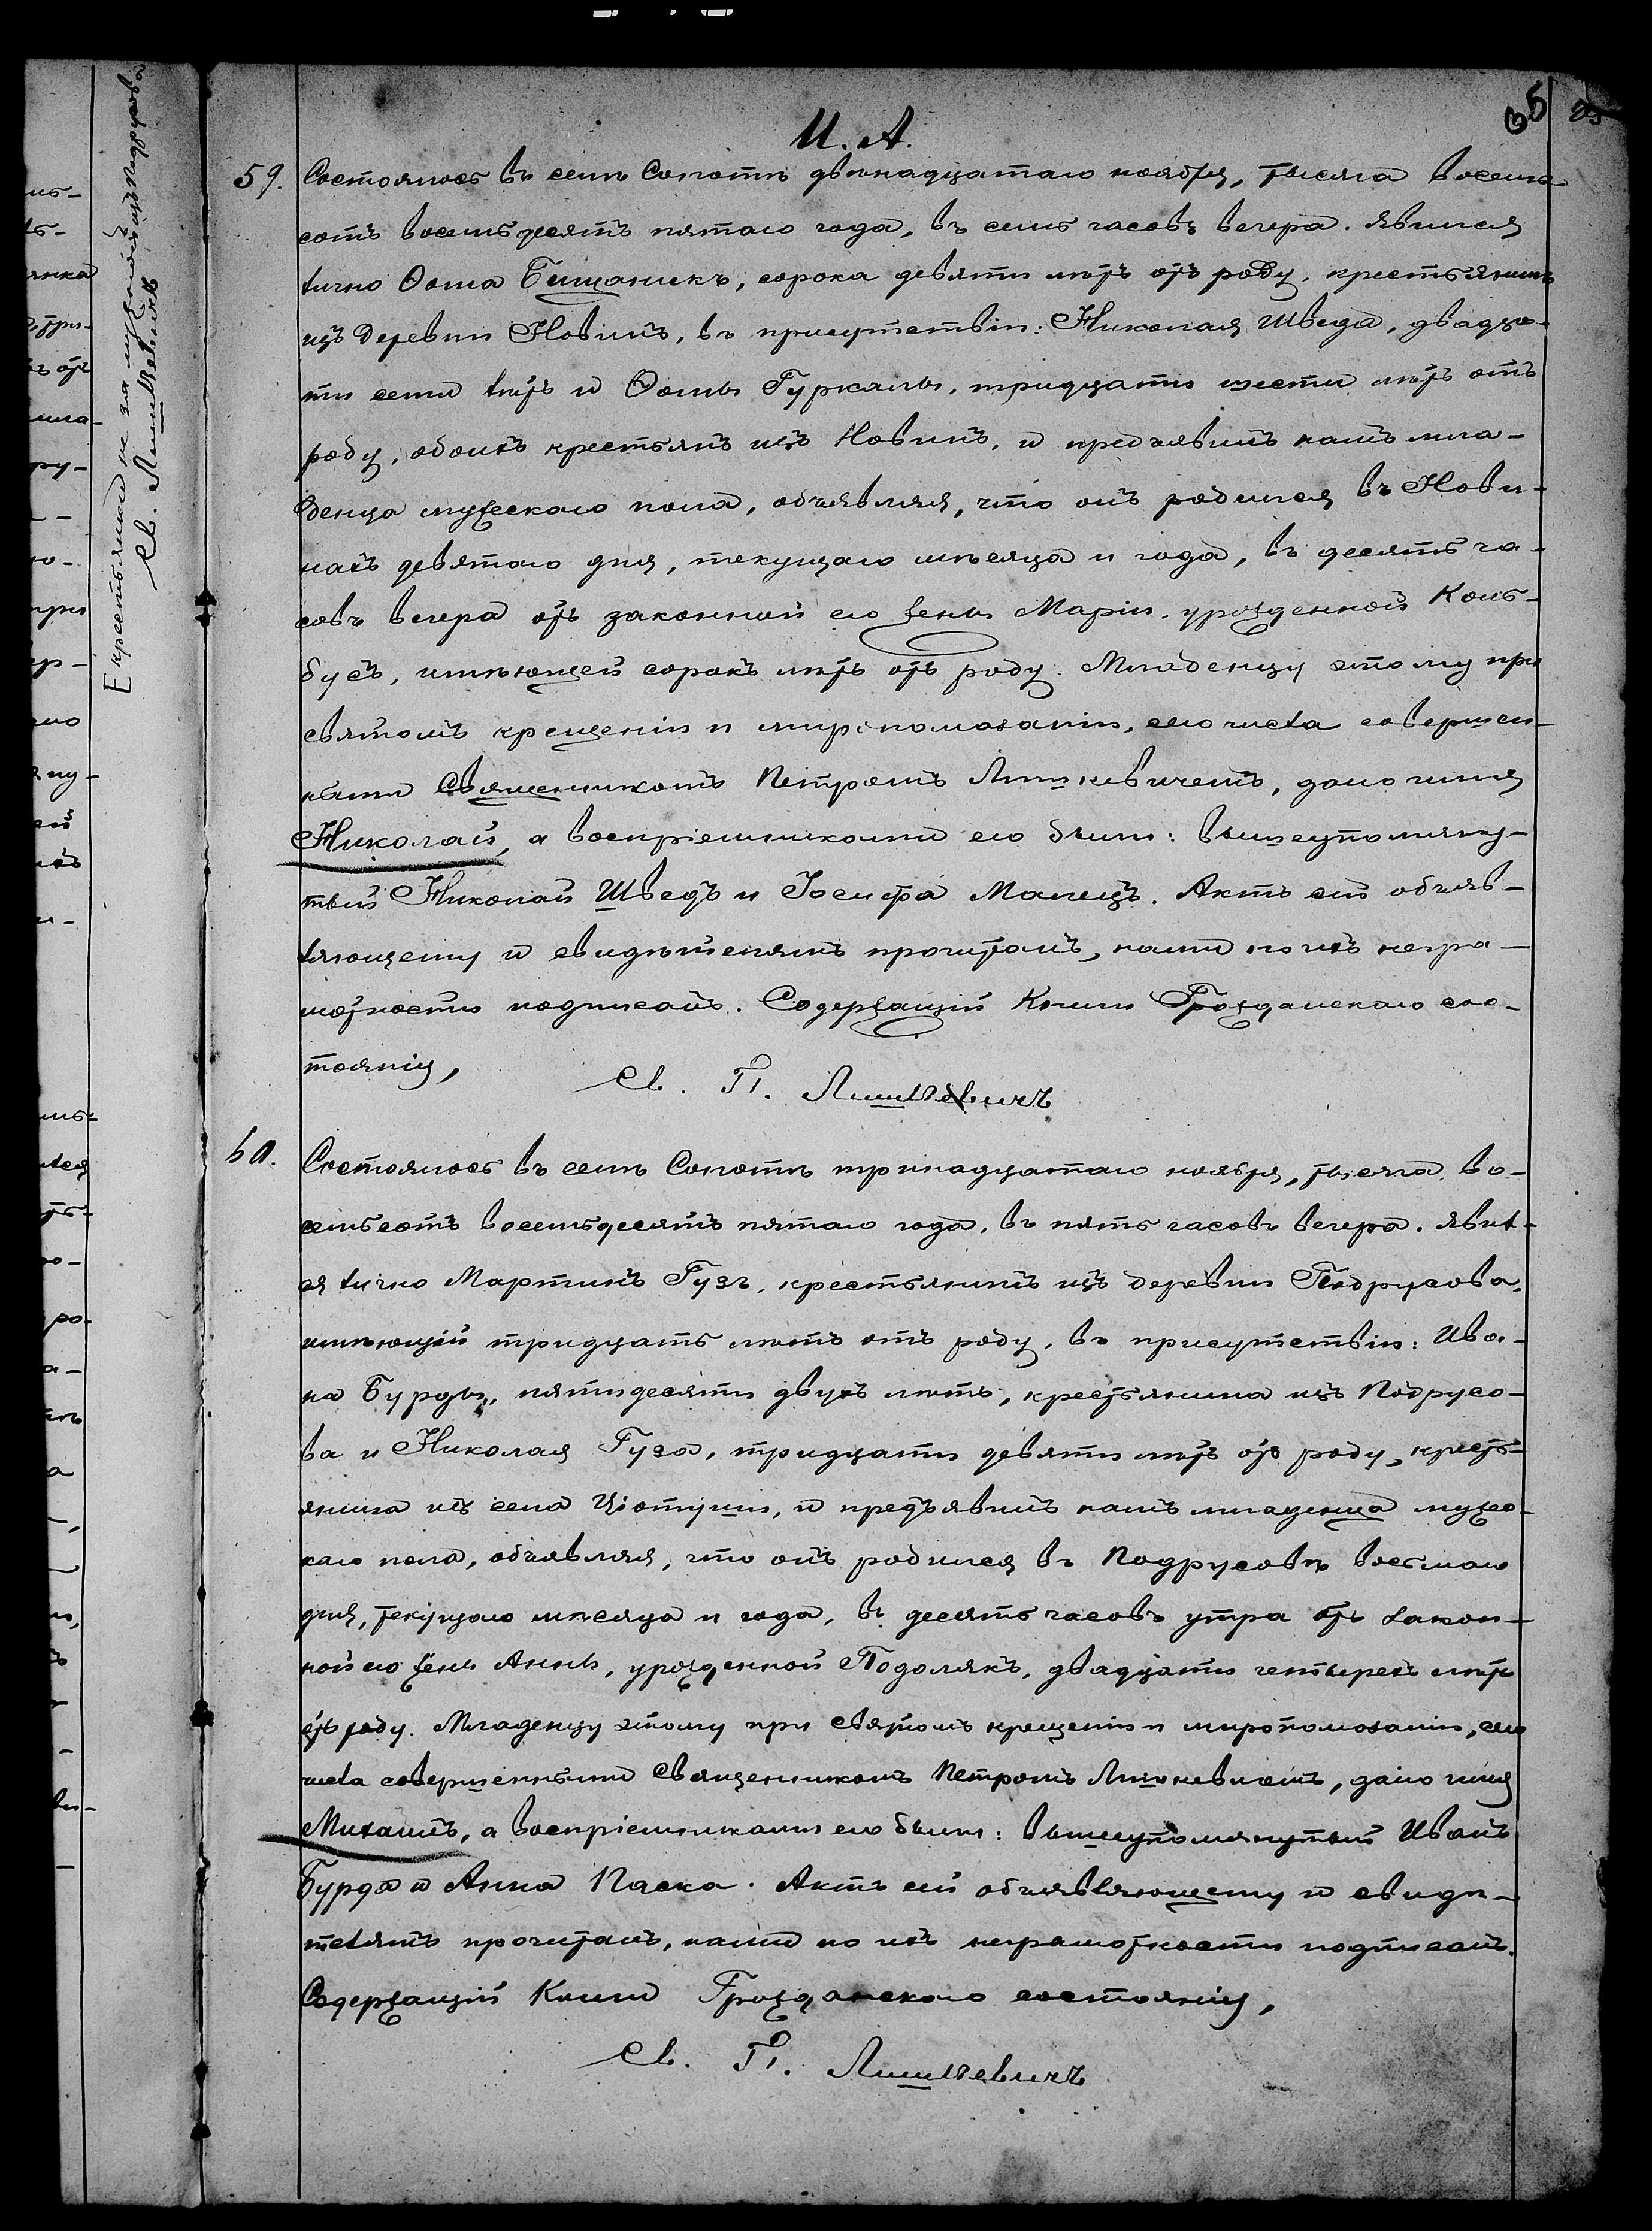 35
И. А.
59. Состоялось въ селѣ Сопотѣ двѣнадцатаго ноября, тысяча восемь-
сотъ восемьдесятъ пятаго года, въ семь часовъ вечера. Явился
лично Ѳома Бищаникъ, сорока девяти лѣтъ отъ роду, крестьянинъ
изъ деревни Новинъ, въ присутствіи: Николая Шведа, двадца-
ти семи лѣтъ и Ѳомы Гуркалы, тридцати шести лѣтъ отъ
роду, обоихъ крестьянъ изъ Новинъ, и предъявилъ намъ мла-
денца мужескаго пола, объявляя, что онъ родился въ Нови-
нахъ девятаго дня, текущаго мѣсяца и года, въ десять ча-
совъ вечера отъ законной его жены Маріи, урожденной Коль-
бусъ, имѣющей сорокъ лѣтъ отъ роду. Младенцу этому при
святомъ крещеніи и миропомазаніи, сего числа совершен-
ными Священникомъ Петромъ Лишкевичемъ, дано имя
Николай, а воспріемниками его были: вышеупомяну-
тый Николай Шведъ и Іосифа Малецъ. Актъ сей объяв-
ляющему и свидѣтелямъ прочитанъ, нами по ихъ негра-
мотности подписанъ. Содержащій Книги Гражданскаго сос-
тоянія,
Св. П. Лишкевичъ
60. Состоялось въ селѣ Сопотѣ тринадцатаго ноября, тысяча во-
семьсотъ восемьдесятъ пятаго года, въ пять часовъ вечера. Явил-
ся лично Мартинъ Гузъ, крестьянинъ изъ деревни Подрусова,
имѣющій тридцать лѣтъ отъ роду, въ присутствіи: Ива-
на Бурды, пятидесяти двухъ лѣтъ, крестьянина изъ Подрусо-
ва и Николая Гуза, тридцати девяти лѣтъ отъ роду, кресть-
янина изъ села Ціотуши, и предъявилъ намъ младенца мужес-
каго пола, объявляя, что онъ родился въ Подрусовѣ восьмаго
дня, текущаго мѣсяца и года, въ десять часовъ утра отъ закон-
ной его жены Анны, урожденной Подолякъ, двадцати четырехъ лѣтъ
отъ роду. Младенцу этому при святомъ крещеніи и миропомазаніи, сего
числа совершенными Священникомъ Петромъ Лишкевичемъ, дано имя
Михаилъ, а воспріемниками его были: вышеупомянутый Иванъ
Бурда и Анна Паска. Актъ сей объявляющему и свидѣ-
телямъ прочитанъ, нами по ихъ неграмотности подписанъ.
Содержащій Книги Гражданскаго состоянія,
Св. П. Лишкевичъ